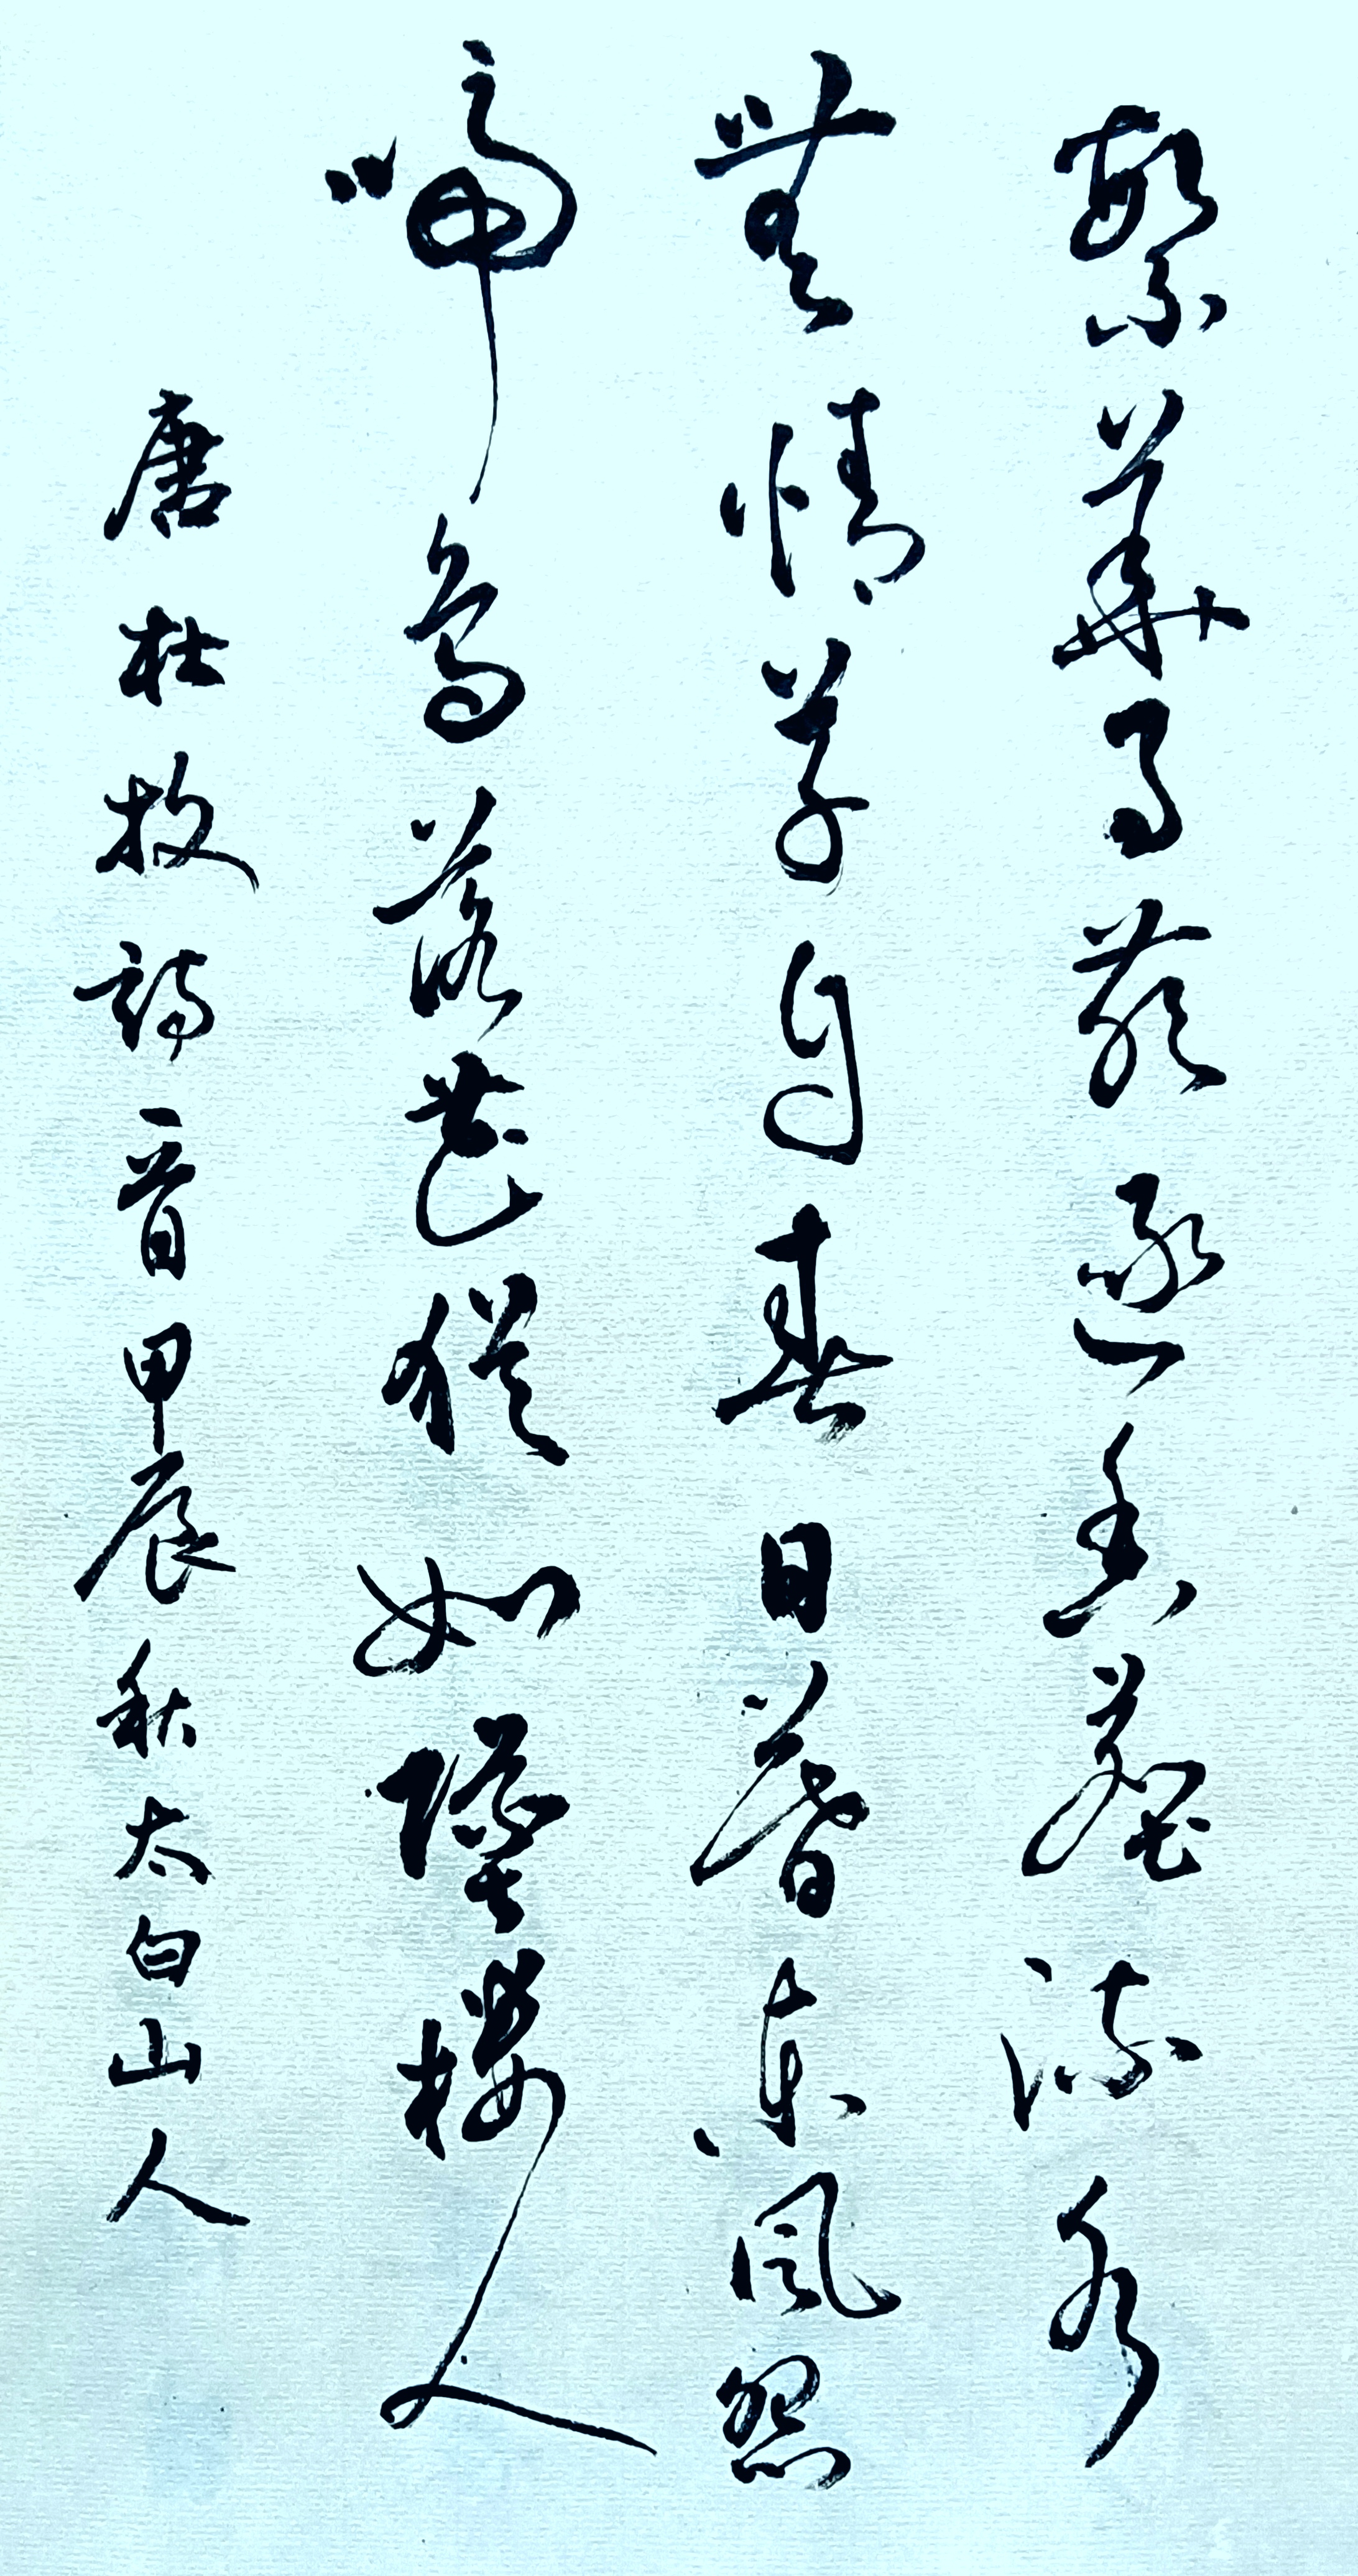 繁華事散逐香塵流水
無情草自春日暮東風怨
啼鳥落花猶如墜樓人
唐杜牧詩一首甲辰秋太白山人